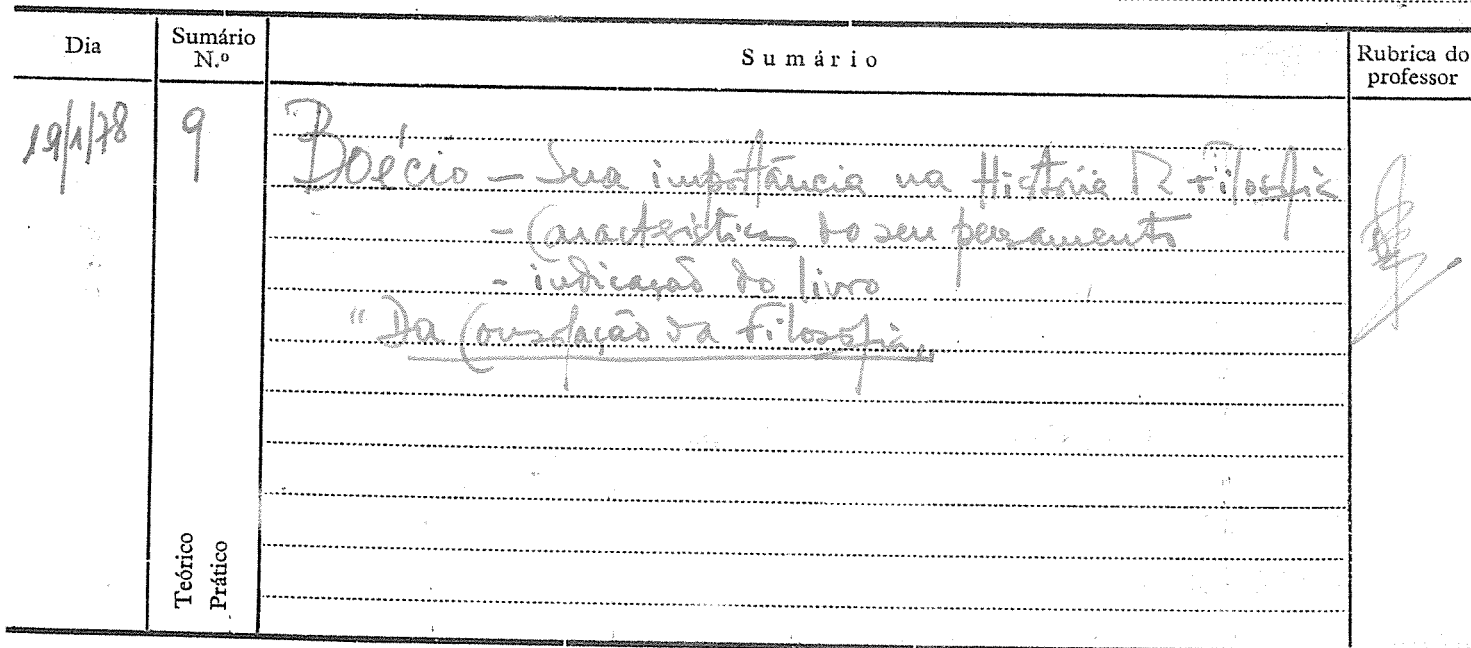 Dia Sumário N.º Sumário Rubrica do professor
19/1/78 9 Boécio - Sua importância na História da Filosofia
- Características do seu pensamento
- indicação do livro
"Da Consolação da Filosofia"
Teórico
Prático